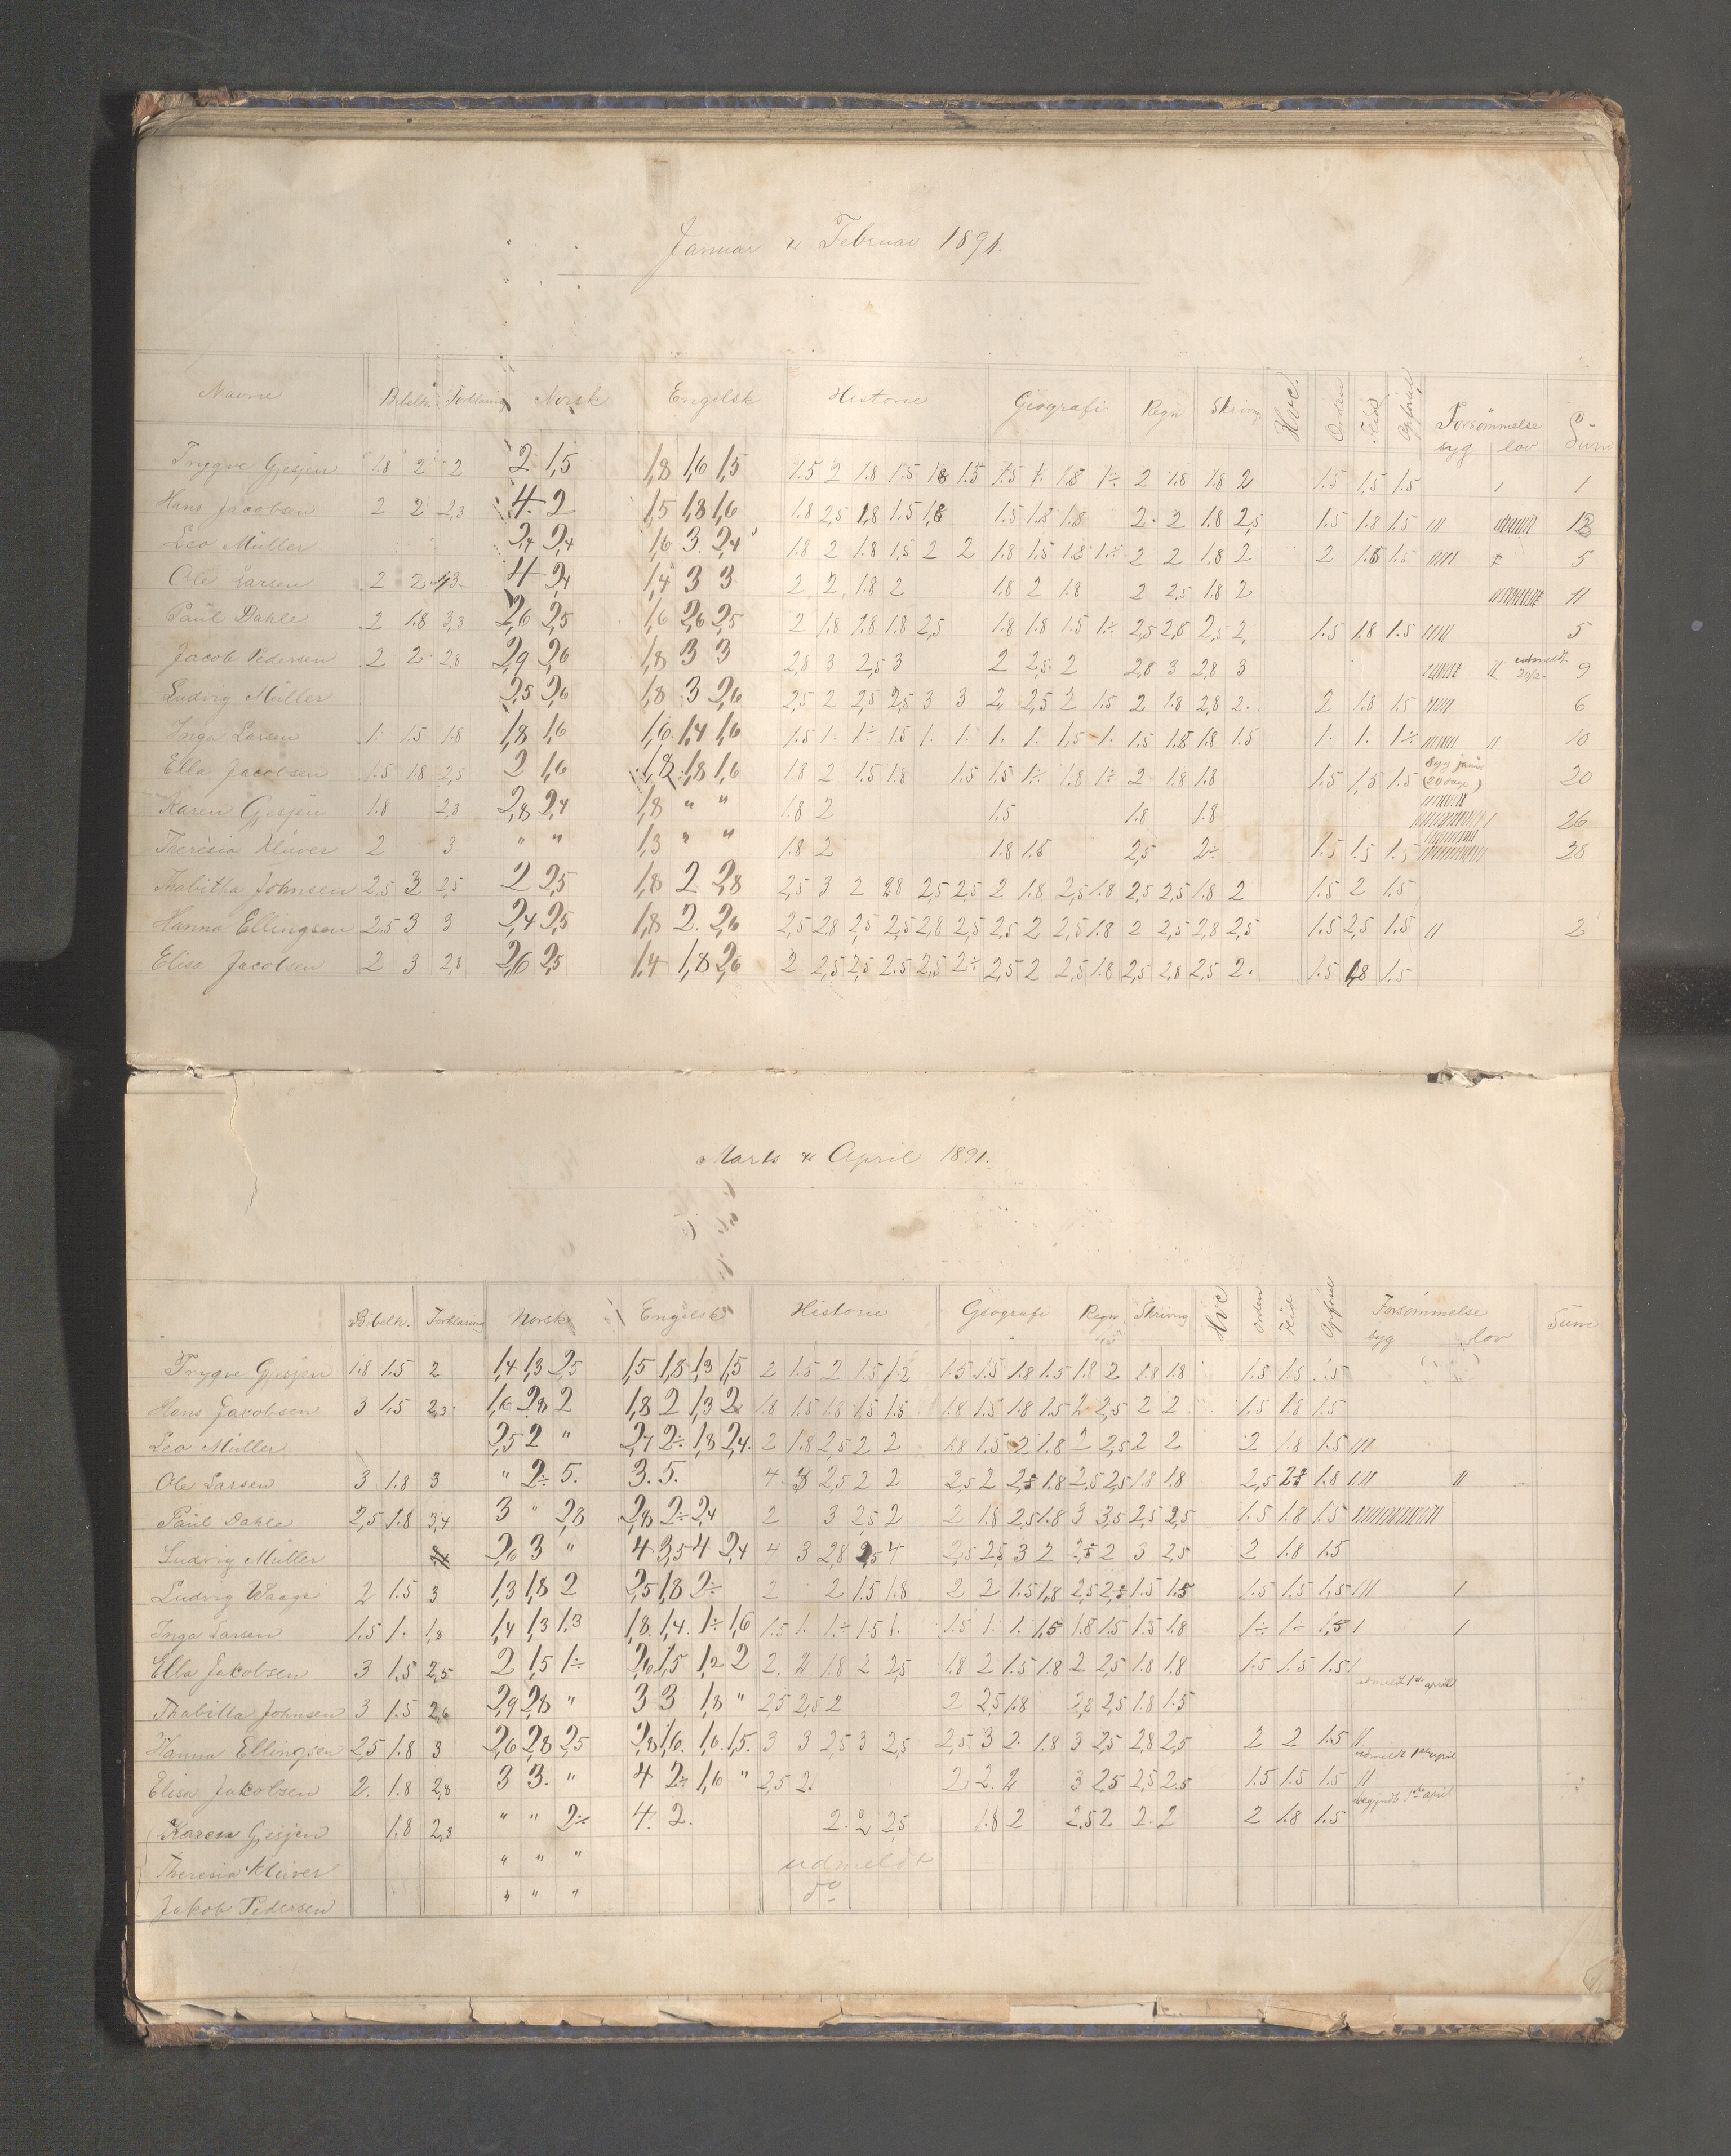 Januar & Februar 1891.
Navne Bibelh. Forklaring Norsk Engelsk Historie Geografi Regn Skrivn Hvc. Orden Flid Opførsel Forsömmelse Sum
syg lov
Trygve Gjesjen 1.8 2 2 2 1,5 1,8 1,6 1,5 1.5 2 1.8 1.5 1.8 1.5 1.5 1. 1.8 1÷ 2 1.8 1.8 2 1.5 1,5 1.5 1
Hans Jacobsen 2 2 2,3 4 2 1,5 1,8 1,6 1.8 2,5 1,8 1.5 1,8 1.5 1.8 1.8 2. 2 1.8 2,5 1.5 1.8 1.5 12
Leo Müller 2,4 2,4 1,6 3. 2,4 1.8 2 1.8 1,5 2 2 1.8 1.5 1.8 1.÷ 2 2 1,8 2 2 1.5 1.5 5
Ole Larsen 2 2 3 4 2,4 1,4 3 3 2 2 1.8 2 1.8 2 1.8 2 2,5 1.8 2 11
Paul Dahle 2 1.8 3,3 2,6 2,5 1,6 2,6 2,5 2 1.8 1.8 1.8 2,5 1.8 1.8 1.5 1.÷ 2,5 2,8 2,5 2, 1.5 1.8 1.5 5
Jacob Pedersen 2 2 2,8 2,9 2,6 1,8 3 3 2,8 3 2,5 3 2 2,5 2 2,8 3 2,8 3 udmeldt 9
Ludvig Müller 2,5 2,6 1,8 3 2,6 2,5 2 2,5 2,5 3 3 2 2,5 2 1.5 2 1.8 2,8 2. 2 1.8 1.5 6
Inga Larsen 1. 1.5 1.8 1,8 1,6 1,6 1,4 1,6 1.5 1. 1÷ 1.5 1. 1. 1. 1. 1,5 1. 1.5 1.8 1.8 1.5 1. 1. 1÷ 10
Ella Jacobsen 1.5 1.8 2,5 2 1,6 1,8 1,8 1,6 1.8 2 1.5 1.8 1.5 1.5 1÷ 1.8 1÷ 2 1.8 1.8 1.5 1,5 1.5 syg januar (20 dage) 20
Karen Gjesjen 1.8 2,3 2,8 2,4 1,8 " " 1.8 2 1.5 1.8 1.8 26
Theresia Kluver 2 3 " " 1,3 " " 1.8 2 1.8 1.5 2,5 2÷ 1.5 1.5 1.5 28
Thabitha Johnsen 2,5 3 2,5 2 2,5 1,8 2 2,8 2,5 3 2 2,8 2,5 2,5 2 1.8 2,5 1.8 2,5 2,5 1.8 2 1.5 2 1.5
Hanna Ellingsen 2.5 3 3 2,4 2,5 1,8 2. 2,6 2,5 2,8 2,5 2,5 2,8 2,5 2,5 2 2,5 1.8 2 2,5 2,8 2,5 1.5 2,5 1.5 2
Elisa Jacobsen 2 3 2,8 2,6 2,5 1,4 1,8 2,6 2 2,5 2,5 2.5 2,5 2÷ 2,5 2 2,5 1.8 2,5 2,8 2,5 2. 1.5 1,8 1.5
Marts & April 1891.
Bibelh. Forklaring Norsk Engelsk Historie Geografi Regn Skrivng Hvc Orden Flid Opførsel Forsömmelse Sum
syg lov
Trygve Gjesjen 1.8 1.5 2 1,4 1,3 2,5 1,5 1,8 1,3 1,5 2 1.5 2 1.5 1.2 1.5 1.5 1.8 1.5 1.8 2 1.8 1.8 1.5 1.5 1.5
Hans Jacobsen 3 1,5 2,3 1,6 2,8 2 1,8 2 1,3 2 1.8 1.5 1.8 1.5 1.5 1.8 1.5 1.8 1.5 2 2,5 2 2 1.5 1.8 1.5
Leo Müller 2,5 2 " 2,7 2÷ 1,8 2,4. 2 1.8 2,5 2 2 1.8 1.5 2 1.8 2 2,5 2 2 2 1.8 1.5
Ole Larsen 3 1.8 3 " 2÷ 5. 3. 5. 4 3 2,5 2 2 2,5 2 2,5 1.8 2.5 2,5 1.8 1.8 2,5 1.8
Paul Dahle 2,5 1.8 3,4 3 " 2,8 2,8 2÷ 2,4 2 3 2,5 2 2 1.8 2,5 1.8 3 3,5 2,5 2,5 1.5 1.8 1.5
Ludvig Müller 2,6 3 " 4 3,5 4 2,4 4 3 2,8 2,5 4 2,5 2,5 3 2 2,5 2 3 2,5 2 1.8 1.5
Ludvig Waage 2 1.5 3 1,3 1,8 2 2,5 1,8 2÷ 2 2 1.5 1.8 2 2 1.5 1,8 2,5 2,5 1.5 1.5 1.5 1.5 1,5
Inga Larsen 1.5 1. 1,8 1,4 1,3 1.3 1,8. 1,4. 1÷ 1,6 1.5 1. 1.÷ 1.5 1. 1.5 1. 1. 1,5 1.8 1.5 1.5 1.8 1÷ 1÷ 1,5
Ella Jakobsen 3 1.5 2,5 2 1,5 1÷ 2,6 1,5 1,2 2 2. 2 1.8 2 2,5 1.8 2 1.5 1.8 2 2,5 1.8 1.8 1.5 1.5 1.5
Thabitta Johnsen 3 1.5 2,6 2,9 2,8 " 3 3 1,8 " 2,5 2,5 2 2 2,5 1.8 2,8 2,5 1.8 1.5 udmeldt 1ste april
Hanna Ellingsen 2,5 1.8 3 2,6 2,8 2,5 2,8 1,6. 1,6. 1,5. 3 3 2,5 3 2,5 2,5 3 2. 1.8 3 2,5 2,8 2,5 2 2 1.5
Elisa Jakobsen 2. 1.8 2,8 3 3. " 4 2÷ 1,6 " 2,5 2. 2 2. 2 3 2,5 2,5 2.5 1.5 1.5 1.5 udmeldt 1ste april
Karen Gjesjen 1.8 2,3 " " 2÷ 4. 2. 2. 2 2,5 1.8 2 2,5 2 2. 2 2 1.8 1.5 begyndt 1ste april
Theresia Kluver " " " udmeldt
Jakob Pedersen " " " do